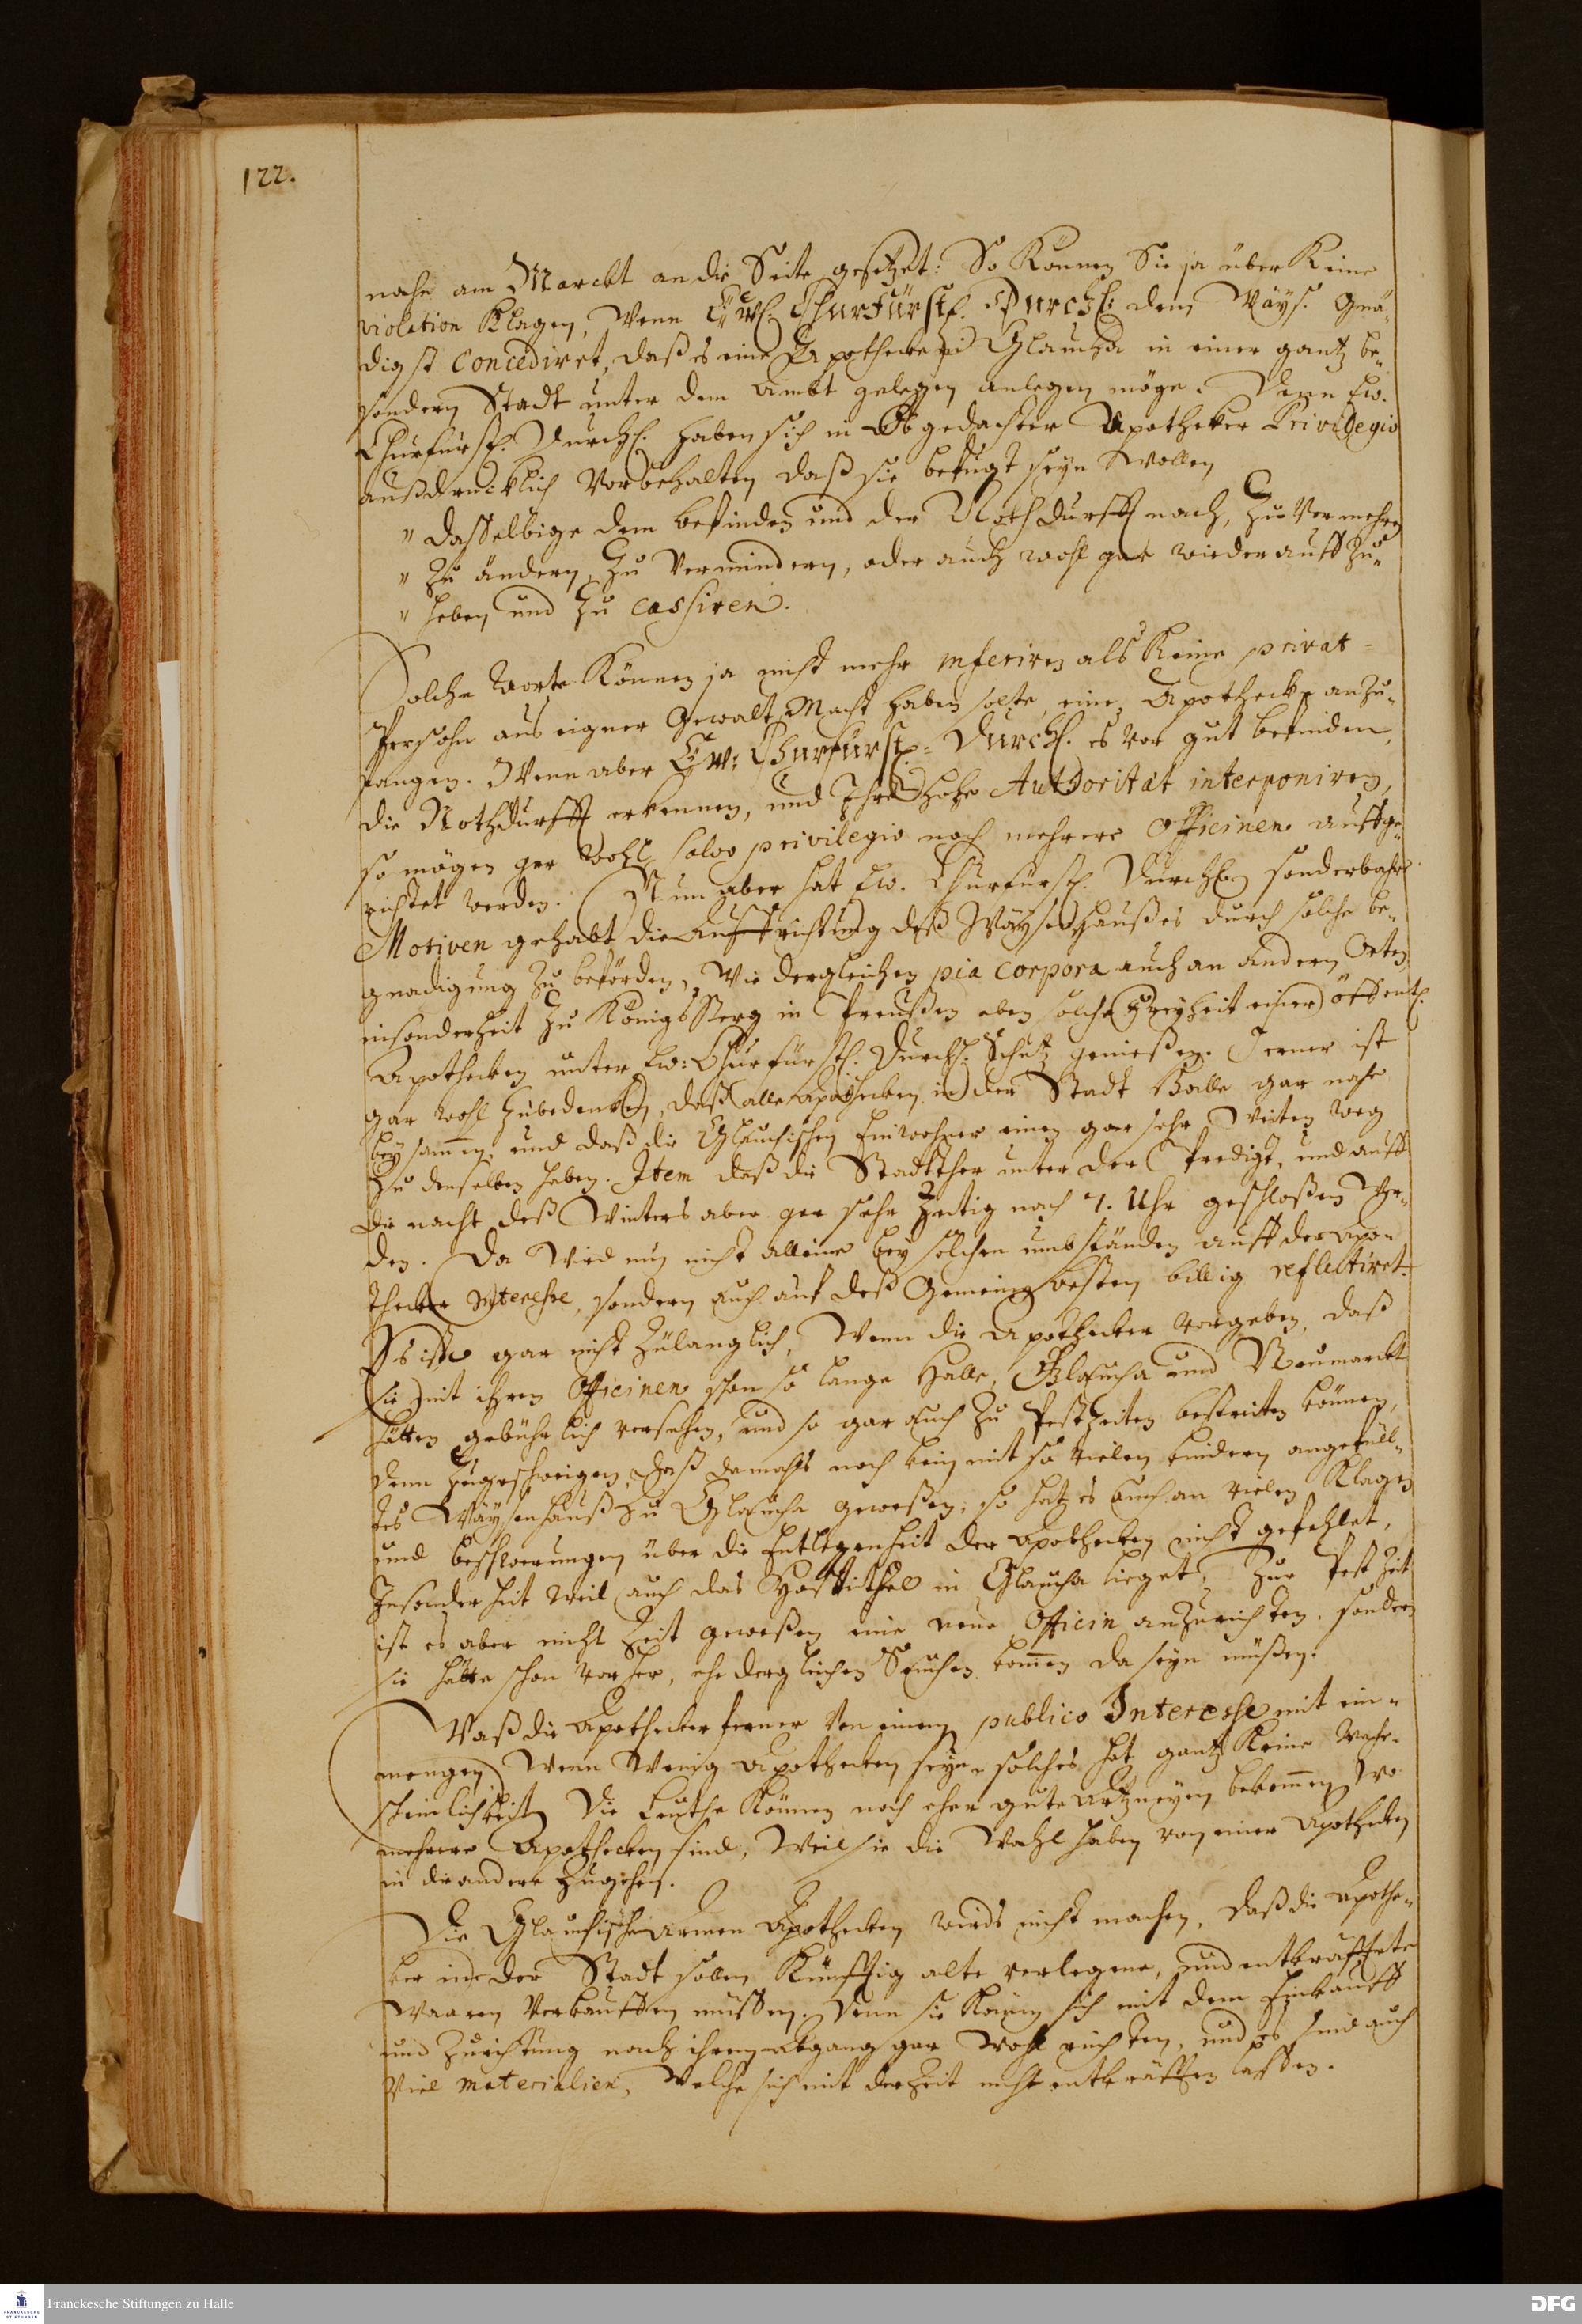 122.
nahe am Marckt an die Seite gesetzet: So können Sie ja über keine
violation klagen, wenn Ew. Churfürstl. Durchl. dem Wäys. gnä-
digst concediret, daß es eine Apothecke zu Glaucha in einer gantz be-
sondern Stadt unter dem Ambt gelegen anlegen möge. Denn Ew.
Churfürstl. Durchl. haben sich in obgedachter Apotheker Privilegio
außdrücklich vorbehalten, daß sie befugt seyn wollen
" dasselbige dem befinden und der Nothdurfft nach, zu vermehren
" zu ändern, zu vermindern, oder auch wohl gar wieder auff zu-
" heben und zu cassiren.
Solche Worte können ja nicht mehr inferiren als keine privat-
Persohn aus eigner Gewalt Macht haben solte, eine Apothecke anzu-
fangen. Wenn aber Ew: Churfürstl. Durchl. es vor gut befinden,
die Nothdurfft erkennen, und Ihre hohe Authorität interponiren,
so mögen gar wohl salvo privilegio noch mehrere Officinen auffge-
richtet werden. Nun aber hat Ew. Churfürstl. Durchl. sonderbahre
Motiven gehabt die Auffrichtung deß Wäysenhaußes durch solche be-
gnadigung zu beförden, wie dergleichen pia corpora auch an andern Orten
insonderheit zu Königsberg in Preußen eben solche Freyheit einer öffentl.
Apothecken unter Ew: Churfürstl. Durchl. Schutz genießen. Ferner ist
gar wohl zubedencken, daß alle Apothecken in der Stadt Halle gar nahe
beysammen, und daß die Glauchischen Einwohner einen gar sehr weiten Weg
zu denselben haben. Item daß die Stadtthor unter der Predigt, und auff
die nacht deß Winters aber gar sehr zeitig nach 4. Uhr geschloßen wer-
den. Da wird nun nicht alleine bey solchen umbständen auff der Apo-
thecker Interesse, sondern auch auf deß Gemeinen besten billig reflectiret.
Es ist gar nicht zulänglich, wenn die Apothecker vorgeben, daß
sie mit ihren Officinen schon so lange Halle, Glaucha und Neumarckt
hätten gebührlich versehen, und so gar auch zu Pestzeiten bestreiten können,
denn zugeschweigen, daß damahls noch kein mit so vielen kindern angefüll-
tes Wäysenhauß zu Glaucha geweßen; so hat es auch an vielen Klagen
und beschwerungen über die Entlegenheit der Apothecken nicht gefehlet,
Insonderheit weil auch das Hospithal in Glaucha lieget. Zur Pest Zeit
ist es aber nicht Zeit geweßen eine neue Officin anzurichten, sondern
sie hätte schon vorher, ehe dergleichen Seuchen kommen da seyn müßen.
Waß die Apothecker ferner von einem publico Interesse mit ein-
mengen, wenn wenig Apothecken seyn, solches hat gantz keine Wahr-
scheinlichkeit. Die Leuthe können noch eher gute Artzneyen bekommen, wo
mehrere Apothecken sind, weil sie die Wahl haben von einer Apothecken
in die andere zugehen.
Die Glauchische Armen Apothecken wirds nicht machen, daß die Apothe-
ker in der Stadt sollen künfftig alte verlegene, und entkräfftete
Waaren verkauffen müssen. Denn sie können sich mit dem Einkauff
und Zurichtung nach ihrem abgang gar wohl richten, und es sind auch
viel materialien, welche sich mit der Zeit nicht entkräfften lassen.
Franckesche Stiftungen zu Halle
DFG